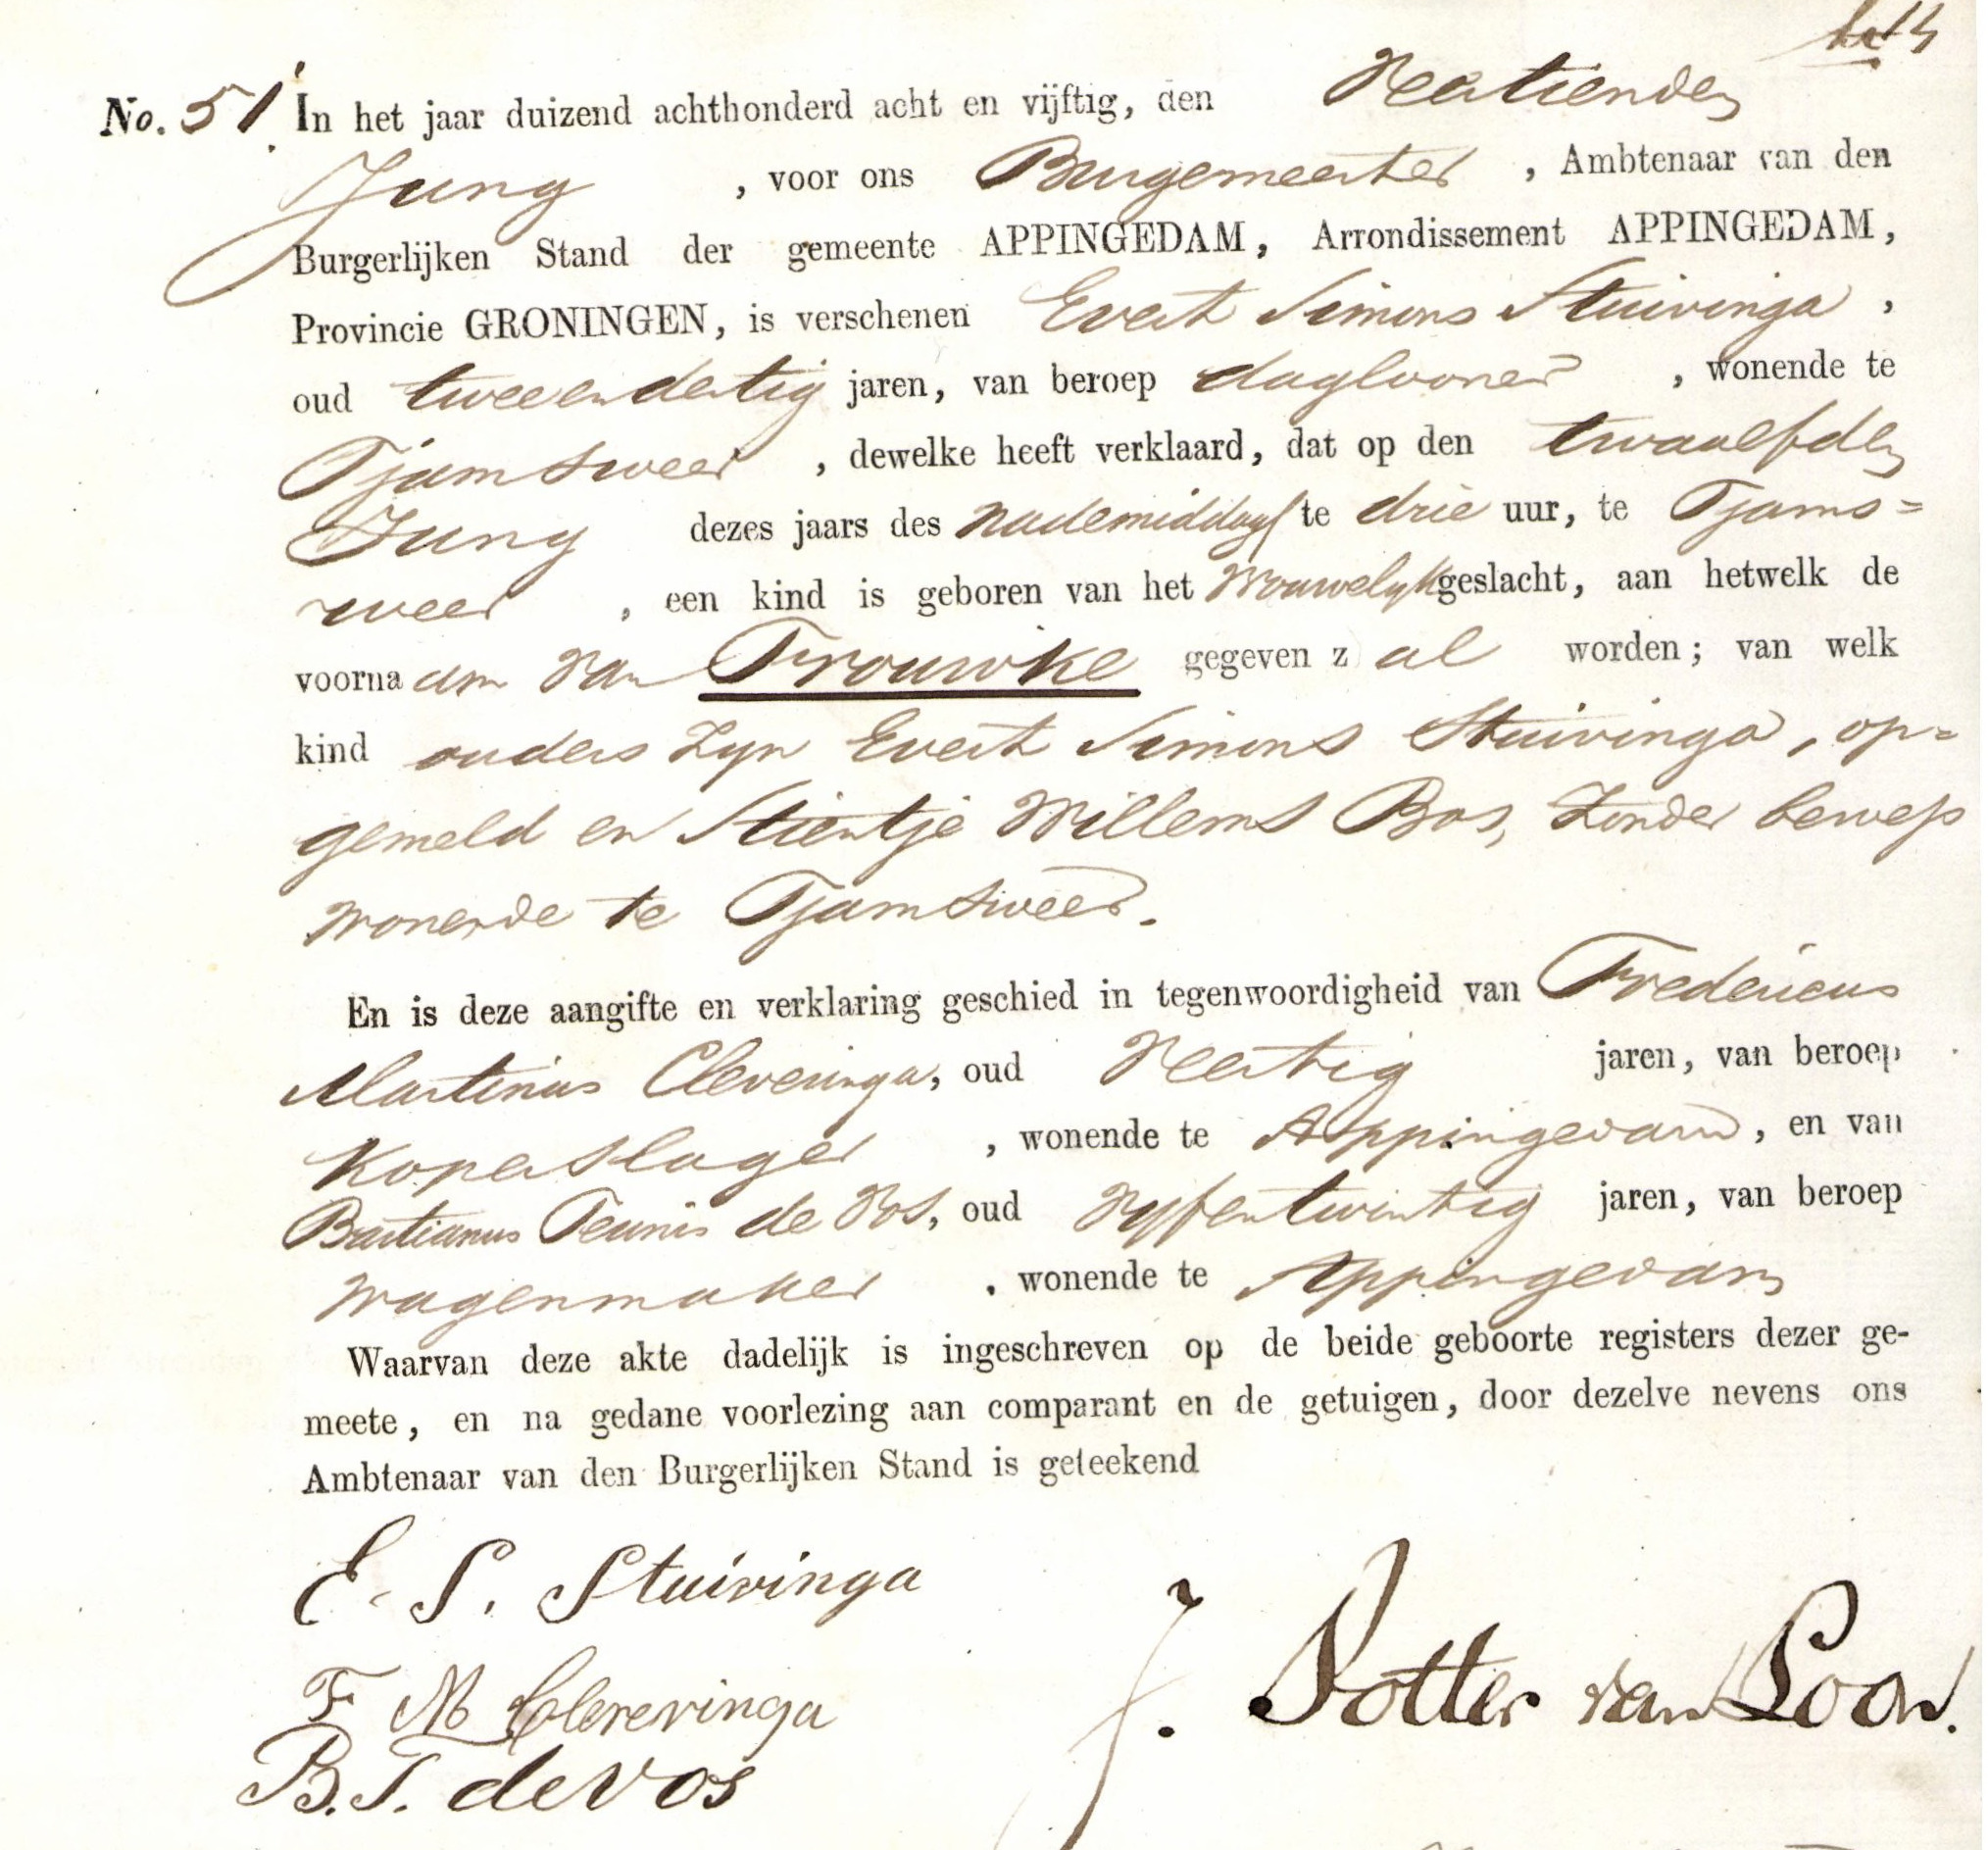 No. 51. In het jaar duizend achthonderd acht en vijftig, den Veertienden
Juny , voor ons Burgemeester , Ambtenaar van den
Burgerlijken Stand der gemeente APPINGEDAM, Arrondissement APPINGEDAM,
Provincie GRONINGEN, is verschenen Evert Simons Stuivinga ,
oud tweeendertig jaren, van beroep daglooner , wonende te
Tjamsweer , dewelke heeft verklaard, dat op den twaalfden
Juny dezes jaars des nademiddags te drie uur, te Tjams=
weer , een kind is geboren van het Vrouwelyk geslacht, aan hetwelk de
voornaam van Trouwke gegeven zal worden; van welk
kind ouders zyn Evert Simons Stuivinga, op=
gemeld en Stientje Willems Bos, zonder beroep
wonende te Tjamsweer.
En is deze aangifte en verklaring geschied in tegenwoordigheid van Fredericus
Martinus Cleveringa, oud Veertig jaren, van beroep
Koperslager , wonende te Appingedam, en van
Bastianus Teunis de Vos, oud Vyfentwintig jaren, van beroep
Wagenmaker , wonende te Appingedam
Waarvan deze akte dadelijk is ingeschreven op de beide geboorte registers dezer ge-
meete, en na gedane voorlezing aan comparant en de getuigen, door dezelve nevens ons
Ambtenaar van den Burgerlijken Stand is geteekend
E. S. Stuivinga
J. Potter van Loon.
F M Cleveringa
B. T. de Vos